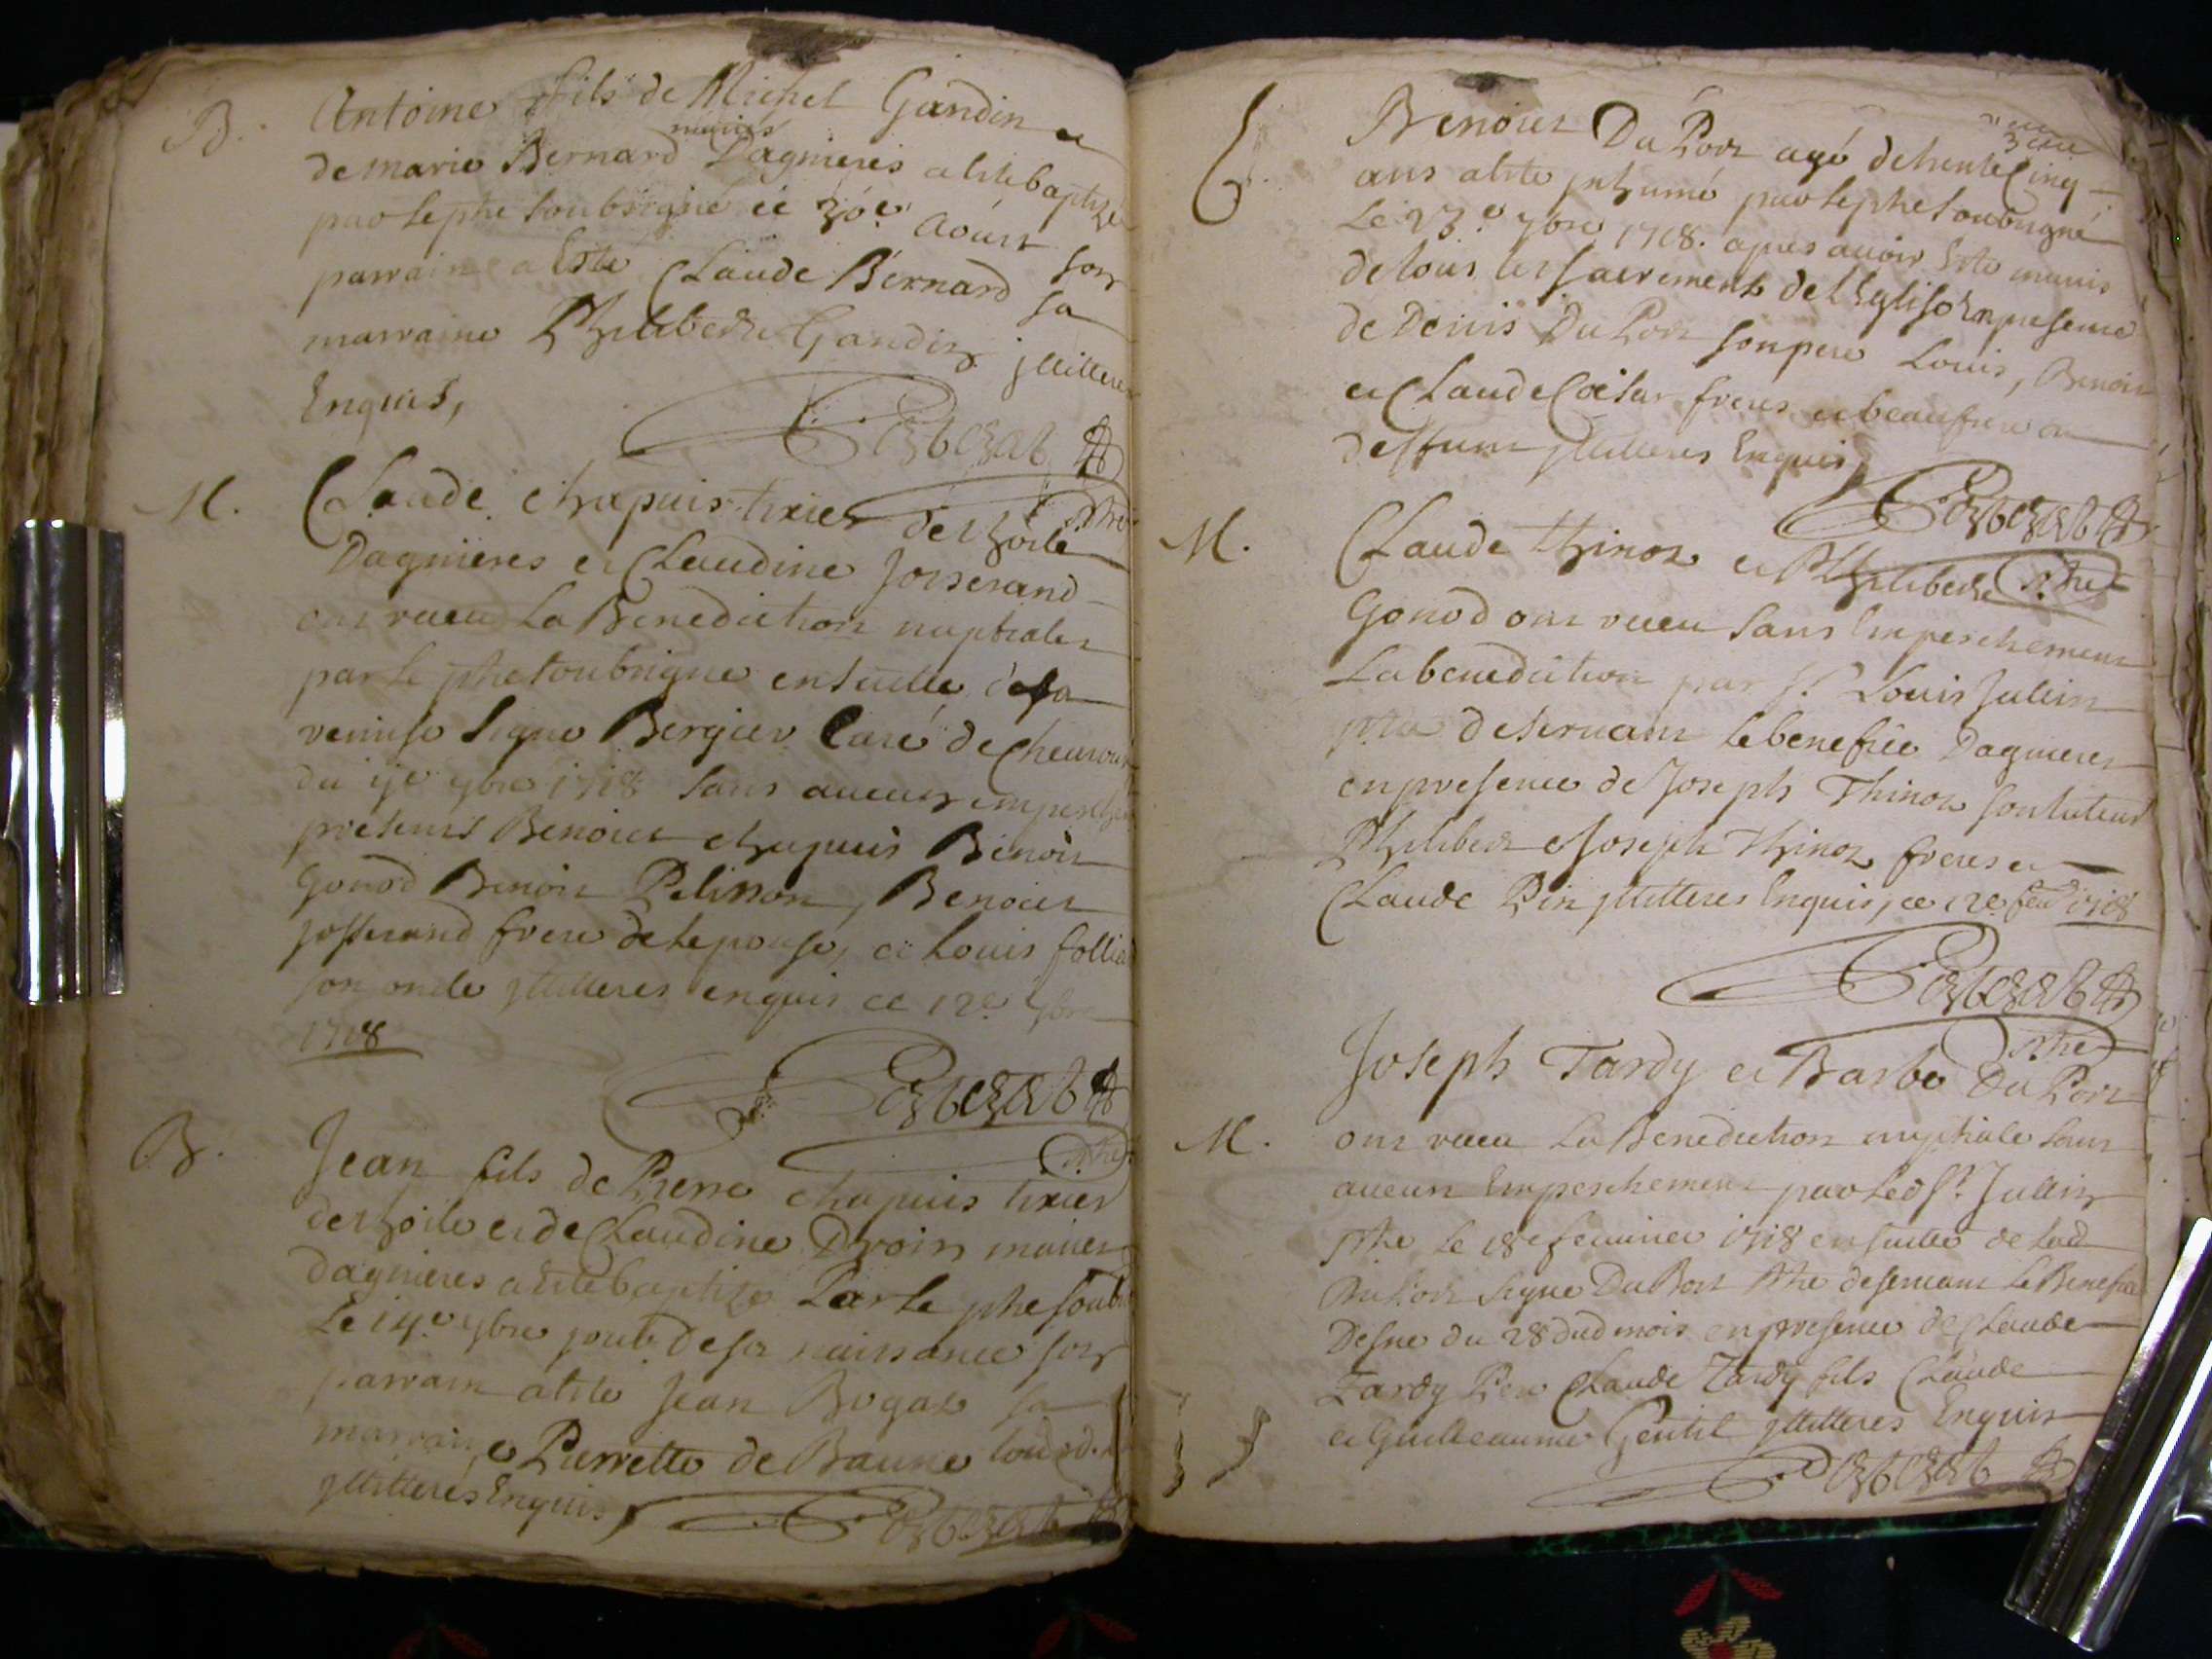 B. Antoine fils de Michel Gandin et
de marie Bernard mariés Dagnieres a esté baptizé
par le pbre soubsigné ce 30e Aoust son
parrain a Esté Claude Bernard sa
marraine Philiberte Gandin jllitteres
Enquis,
M. Claude Chapuis tixier de thoile
Dagnieres et Claudine Josserand
ont receu La Benediction nuptiale
par le pbre soubsigne en suitte de la
remise signe Bergier Curé de Chevroux
du 7bre 1718 sans aucun
presents Benoict Chapuis Benoit
Gonod Benoit Pelisson, Benoict
Josserand frere de lepouse, et Louis
son oncle jllitteres enquis ce 12e 7bre
1718
pbre
B. Jean fils de Pierre Chapuis tixier
de thoile et de Claudine Droin mariez
dagnieres a esté baptize Par le pbre
Le 14e 7bre jour de sa naissance son
parrain a esté Jean Bugat sa
marraine Pierrette de Baune
jllitteres Enquis,
Benoict Du Port agé de trente Cinq
ans a Esté jnhumé par le pbre soubsigné
Le 23e 7bre 1718. apres avoir Esté munis
de tous les sacrements de l'Eglise En presence
de Denis Du Port son pere Louis, Benoit
et Claude Caesar freres et beaufrere du
deffunt jllitteres Enquis,
pbre
M. Claude Thinot et Philiberte
Gonod ont receu sans Empeschement
La benediction par Sr Louis Jullin
pbre deservant le benefice Dagnieres
en presence de Joseph Thinot son tuteur
Philibert et Joseph Thinot freres et
Claude Pin jllitteres Enquis, ce 12e feu 1718
pbre
Joseph Tardy et Barbe Du Port
M. ont receu La Benediction nuptiale sans
aucun Empeschement par led Sr. Jullin
pbre le 18e feuurier 1718 en suitte de
signe Du Port pbre deservant Le Benefice
Desne du 28 dud mois en presence de Claude
Tardy Pere Claude Tardy fils Claude
et Guilleaume Gentil jllitteres Enquis